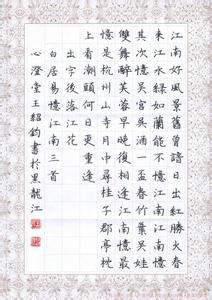 江南好風景舊曾諳日出紅勝火春
來江水綠如藍能不憶江南江南憶
其次憶吳宮吳酒一盃春竹葉吳娃
雙舞醉芙蓉早晚復相逢江南憶最
憶是杭州山寺月中尋桂子郡亭枕
上看潮頭何日更重
出字後落江花
白居易憶江南三首
心澄堂王紹鈞書於黑龍江